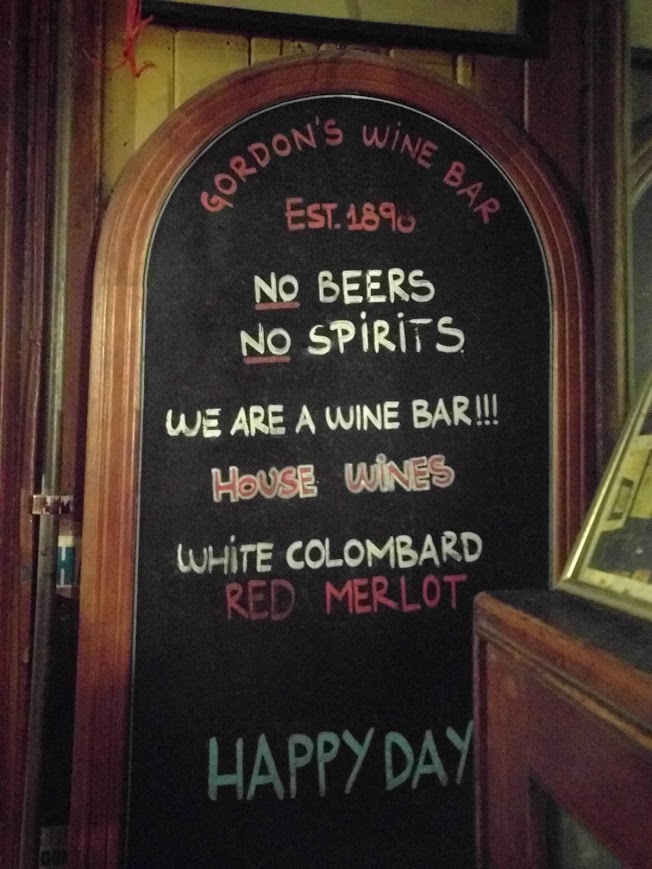 GORDON'S WINE BAR
EST. 1890
NO BEERS
NO SPIRITS
WE ARE A WINE BAR!!!
HOUSE WINES
WHITE COLOMBARD
RED MERLOT
HAPPY DAY